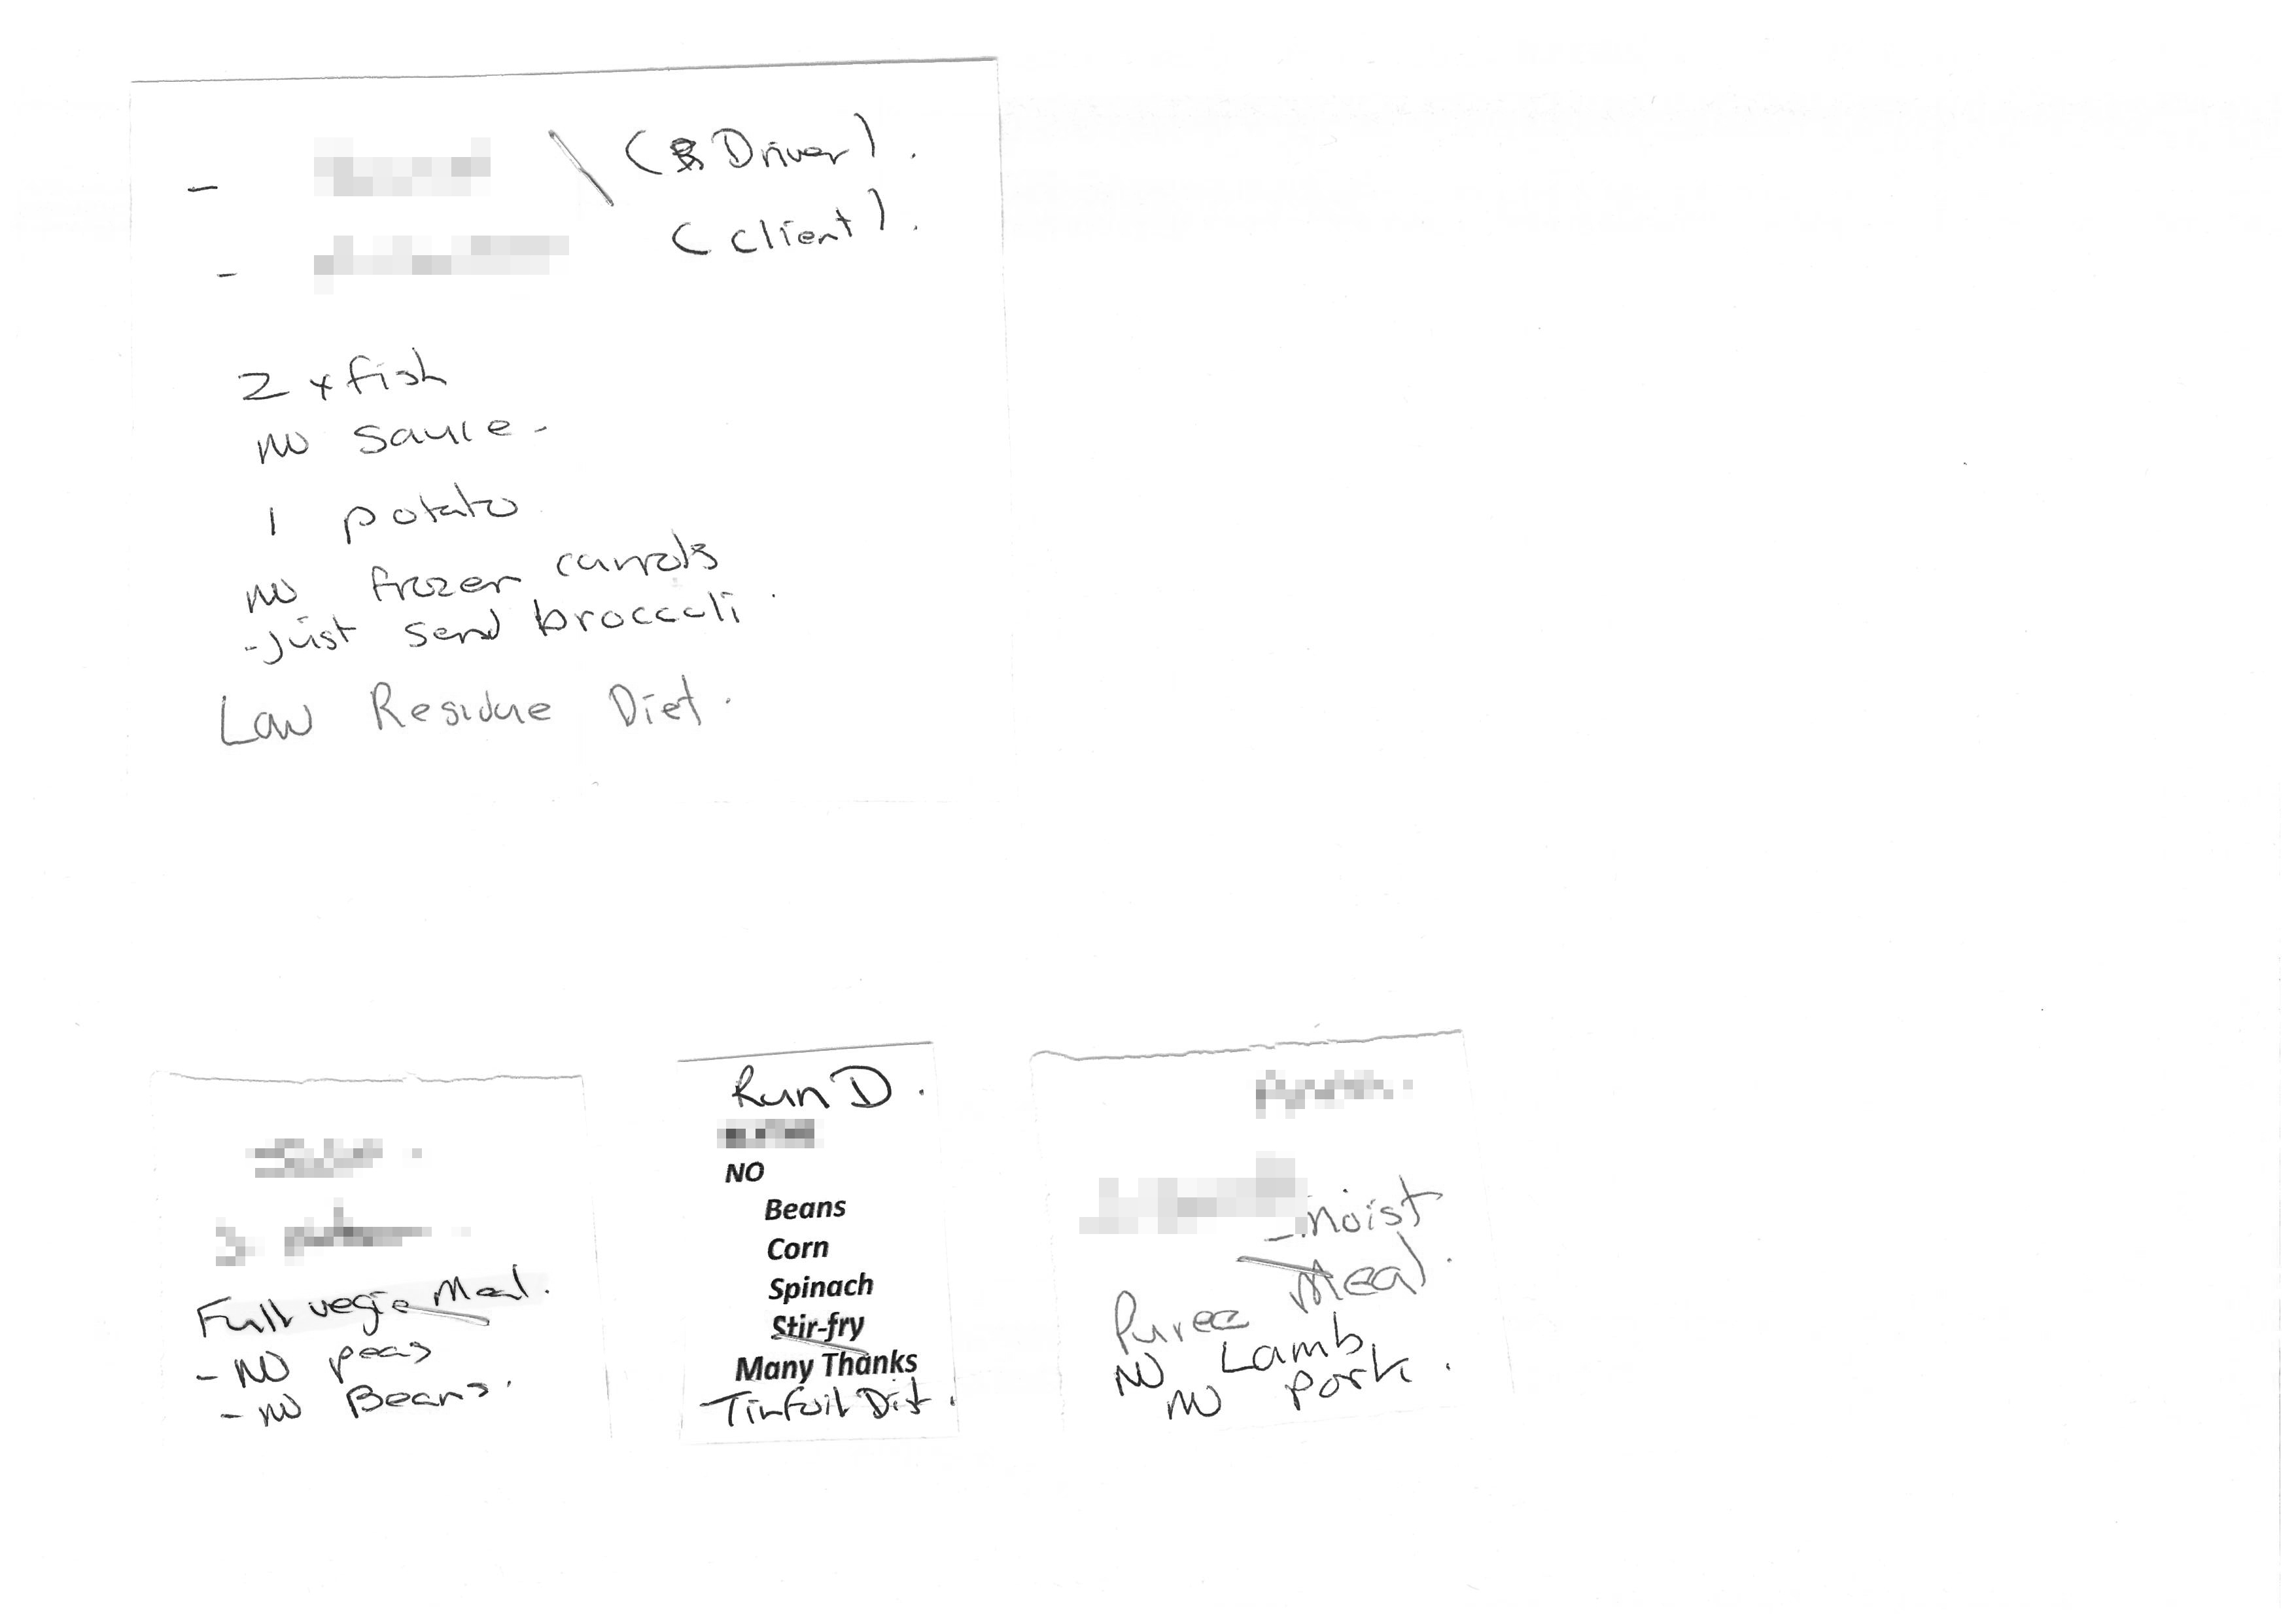 - (Driver).
- (client).
2 x fish
no sauce -
1 potato
no frozen carrots
- Just send broccoli.
Low Residue Diet.
Full vegie Meal.
- No peas
- no Beans.
Run D.
NO
Beans
Corn
Spinach
Stir-fry
Many Thanks
Tinfoil Dish.
- moist
Meal.
Puree
NO Lamb
NO pork.